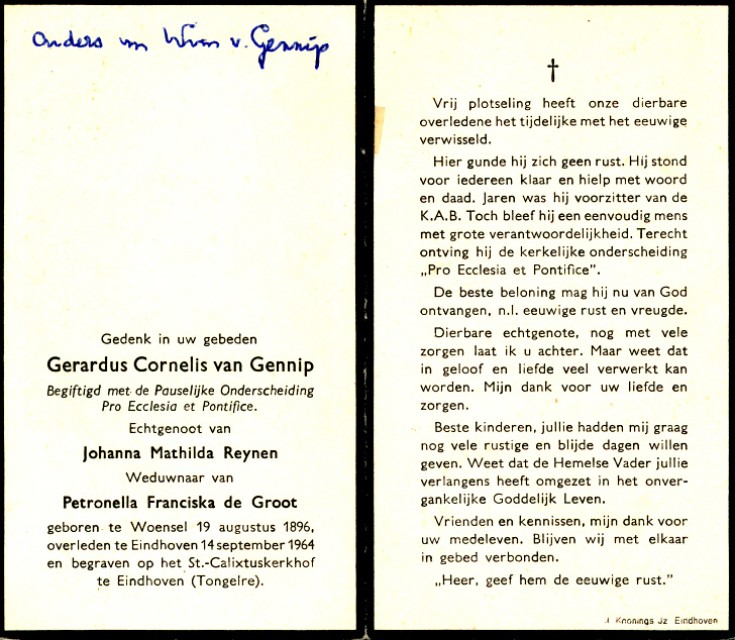 v. Gennip
Gedenk in uw gebeden
Gerardus Cornelis van Gennip
Begiftigd met de Pauselijke Onderscheiding
Pro Ecclesia et Pontifice.
Echtgenoot van
Johanna Mathilda Reynen
Weduwnaar van
Petronella Franciska de Groot
geboren te Woensel 19 augustus 1896,
overleden te Eindhoven 14 september 1964
en begraven op het St.-Calixtuskerkhof
te Eindhoven (Tongelre).
Vrij plotseling heeft onze dierbare
overledene het tijdelijke met het eeuwige
verwisseld.
Hier gunde hij zich geen rust. Hij stond
voor iedereen klaar en hielp met woord
en daad. Jaren was hij voorzitter van de
K.A.B. Toch bleef hij een eenvoudig mens
met grote verantwoordelijkheid. Terecht
ontving hij de kerkelijke onderscheiding
„Pro Ecclesia et Pontifice".
De beste beloning mag hij nu van God
ontvangen, n.l. eeuwige rust en vreugde.
Dierbare echtgenote, nog met vele
zorgen laat ik u achter. Maar weet dat
in geloof en liefde veel verwerkt kan
worden. Mijn dank voor uw liefde en
zorgen.
Beste kinderen, jullie hadden mij graag
nog vele rustige en blijde dagen willen
geven. Weet dat de Hemelse Vader jullie
verlangens heeft omgezet in het onver-
gankelijke Goddelijk Leven.
Vrienden en kennissen, mijn dank voor
uw medeleven. Blijven wij met elkaar
in gebed verbonden.
„Heer, geef hem de eeuwige rust."
Knonings Jz Eindhoven